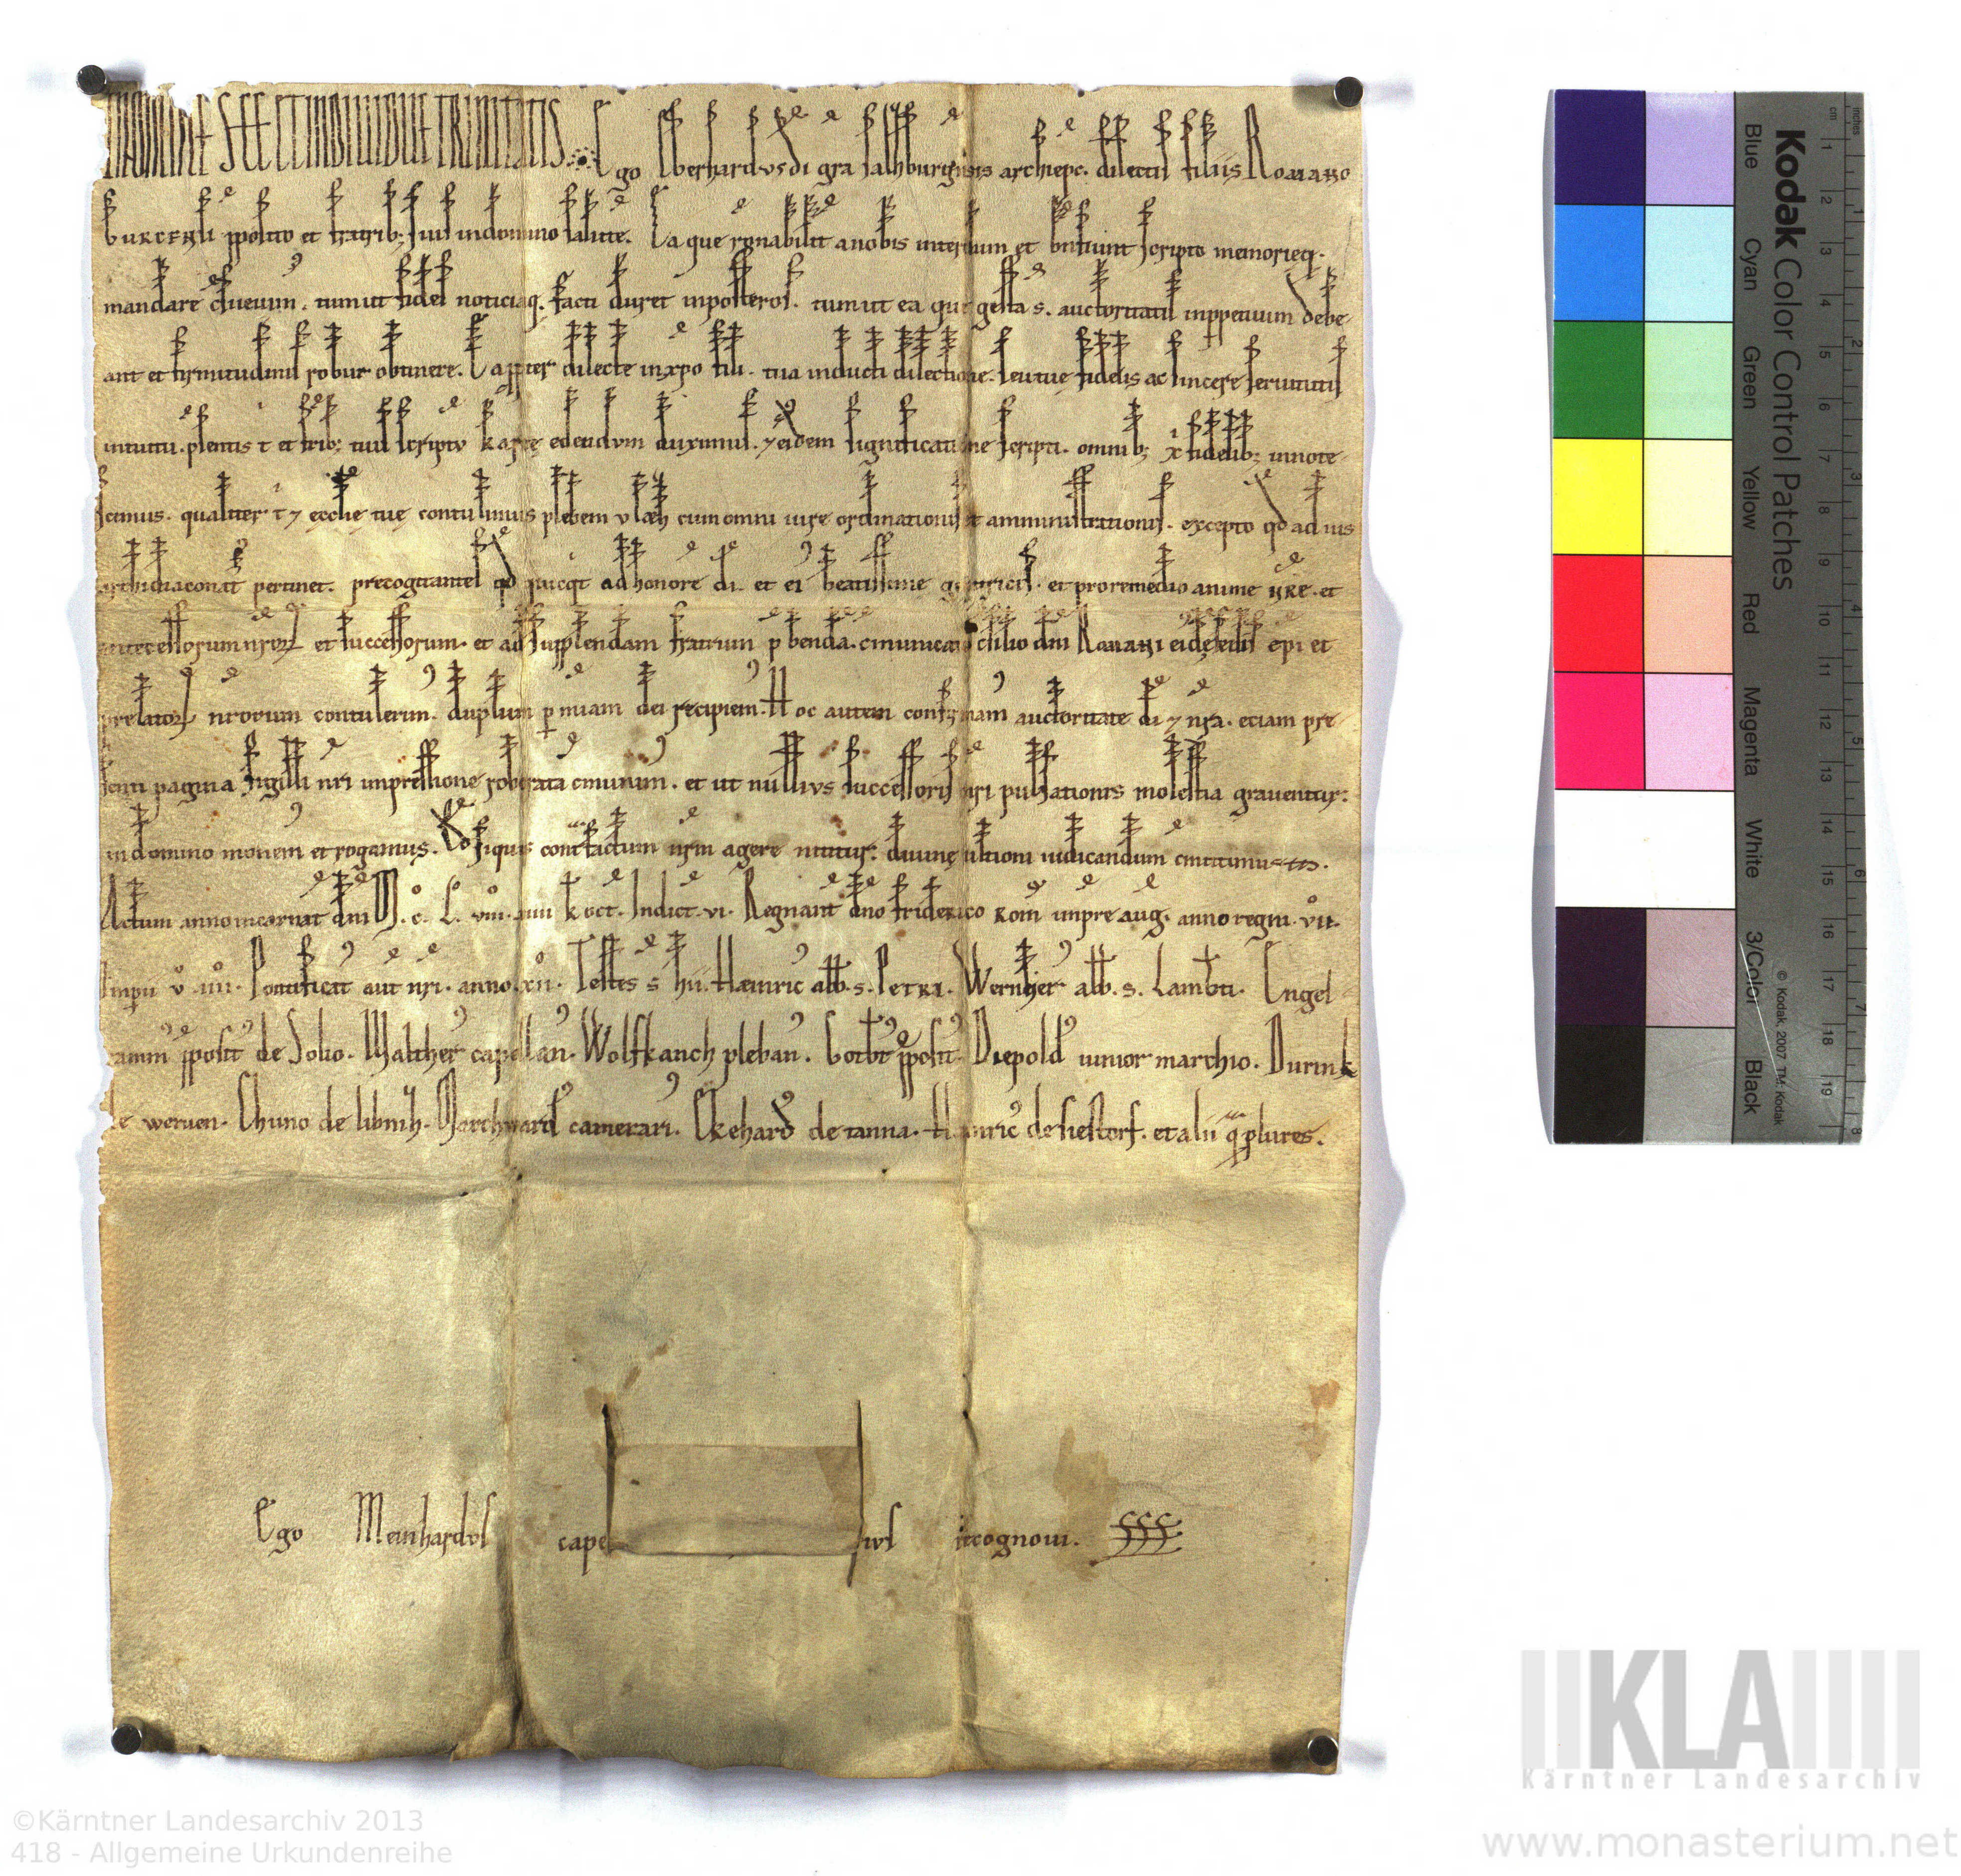 IN NOMINE SCE ET INDIVIDUE TRINITATIS. Ego Eberhardus di gra salzburgensis archiepc. dilectis filiis ROMANO
GURCENSI pposito et fratrib; suis in domino salute. Ea que ronabilit a nobis inter sunt scripto memorieq.
mandare duximus. tum ut fidel noticiaq. facti duret in posteros. tum ut ea que gesta s. auctoritatis in ppetuum debe
ant et firmitudinis robur obtinere. Ea ppter dilecte in xpo fili. tua inducti dilectione. seu tue fidelis ac sincere servitutis
intuitu. petentis t et frib; tuis scripto karte edendum duximus. 7 eidem significatione scripti. omnib; x fidelib; innote
scimus. qualiter t 7 ecclie tue contulimus plebem cum omni iure ordinationis et amministrationis. excepto qd ad ius
archidiaconat pertinet. precogitantes qd quicqt ad honore di. et ei beatissime genitricis. et pro remedio anime nre. et
antecessorum nroru et successorum. et ad supplendam fratrum pbenda. cmunicato csilio dni ROMANI eide sedis epi et
prelatoru nrorum contulerim. duplum p nuam dei recipiem. Hoc autem confirmam auctoritate di 7 nra. etiam pre
senti pagina sigilli nri impressione roborata cmunim. et ut nullius successoris nri pulsationis molestia graventur:
in domino monem et rogamus. Qd si quis contra factum nrm agere nititur. divine ultioni iudicandum cmittimus.
Actum anno incarnat dni M. c. L. viii. iiii k oct. Indict. vi. Regnant dno friderico Rom impre aug. anno regni. vii.
Imperii v iiii. Pontificat aut nri. anno. xii. Testes s hii. Hæinric abb. s. PETRI. Wernher abb. s. Lambti. Engel
ramm pposit de Solio. Walther capellan. Wolfkanch pleban. Gotbt pposit. Diepold iunior marchio. Durink
de werven. Chuno de libnih. Marchward camerari. Ekehard de tanna. Hæinric de sestorf. et alii q plures.
Ego Meinhardus cape nus recognovi.
Kodak Color Control Patches
Blue Cyan Green Yellow Red Magenta White 3/Color Black
© Kodak, 2007 TM: Kodak
cm 1 2 3 4 5 6 7 8 9 10 11 12 13 14 15 16 17 18 19
inches 1 2 3 4 5 6 7 8
KLA
Kärntner Landesarchiv
©Kärntner Landesarchiv 2013
418 - Allgemeine Urkundenreihe
www.monasterium.net